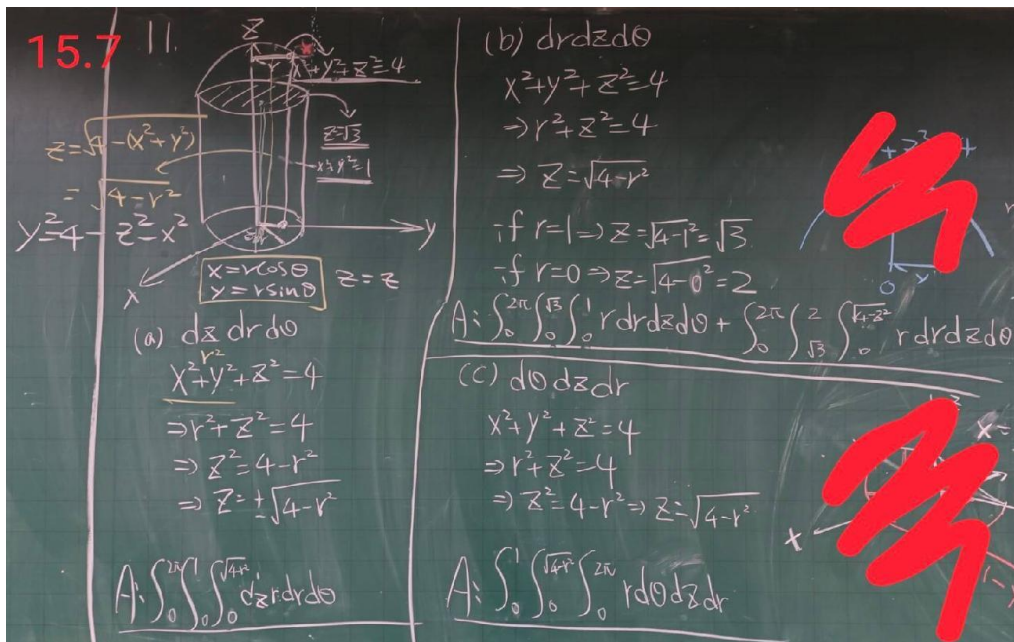 15.7 11.
Z
r
x²+y²+z²=4
z=√3
x²+y²=1
z=√4-(x²+y²)
=√4-r²
y²=4-z²-x²
y
x
x=rcosθ
y=rsinθ
z=z
(a) dz dr dθ
r²
x²+y²+z²=4
⇒r²+z²=4
⇒z²=4-r²
⇒z=±√4-r²
A:∫₀^2π∫₀^1∫₀^√4-r² dz r dr dθ
(b) drdzdθ
x²+y²+z²=4
⇒r²+z²=4
⇒z=√4-r²
if r=1⇒z=√4-1²=√3
if r=0⇒z=√4-0²=2
A:∫₀^2π∫₀^√3∫₀^1 rdrdzdθ+∫₀^2π∫√3^2∫₀^√4-z² rdrdzdθ
0
(c) dθdzdr
x²+y²+z²=4
⇒r²+z²=4
⇒z²=4-r²⇒z=√4-r²
A:∫₀^1∫₀^√4-r²∫₀^2π rdθdzdr
x=
x